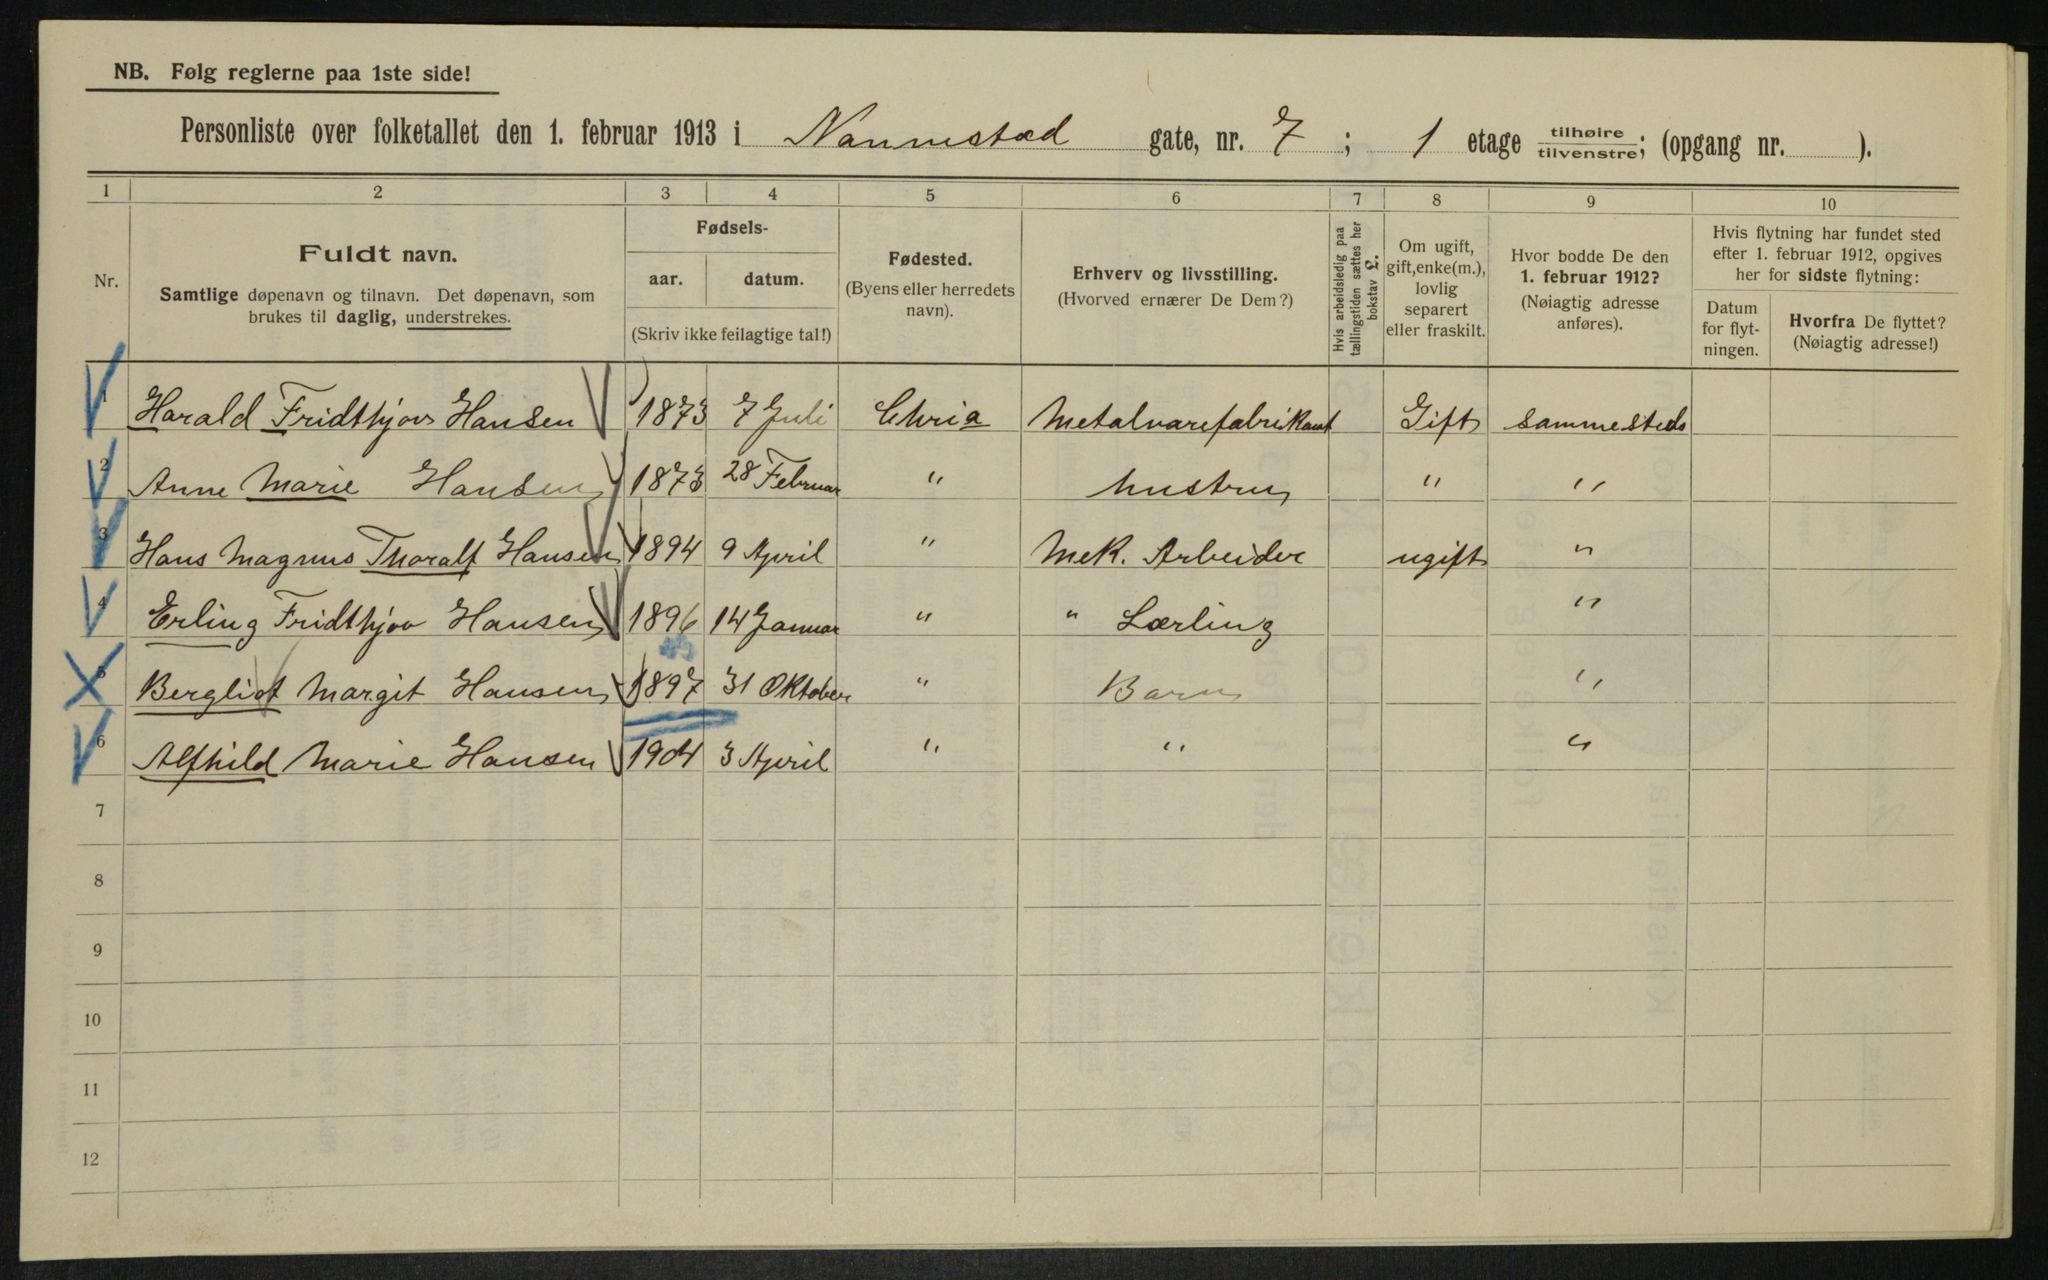 NB. Følg reglerne paa 1ste side!
Personliste over folketallet den 1. februar 1913 i Nannestad gate, nr. 7; 1 etage tilhøire/tilvenstre; (opgang nr. ).
1 2 3 4 5 6 7 8 9 10
Nr.
Fuldt navn.
Samtlige døpenavn og tilnavn. Det døpenavn, som
brukes til daglig, understrekes.
Fødsels-
aar. datum.
(Skriv ikke feilagtige tal!)
Fødested.
(Byens eller herredets
navn).
Erhverv og livsstilling.
(Hvorved ernærer De Dem?)
Hvis arbeidsledig paa
tællingstiden sættes her
bokstav L.
Om ugift,
gift, enke(m.),
lovlig
separert
eller fraskilt.
Hvor bodde De den
1. februar 1912?
(Nøiagtig adresse
anføres).
Hvis flytning har fundet sted
efter 1. februar 1912, opgives
her for sidste flytning:
Datum
for flyt-
ningen.
Hvorfra De flyttet?
(Nøiagtig adresse!)
1 Harald Fridthjov Hansen 1873 7 Juli Chria Metalvarefabrikant Gift sammesteds
2 Anne Marie Hansen 1873 28 Februar " hustru " "
3 Hans Magnus Thoralf Hansen 1894 9 April " Mek. Arbeider ugift "
4 Erling Fridthjov Hansen 1896 14 Januar " " Lærling "
5 Bergliot Margit Hansen 1897 31 Oktober " Barn "
6 Alfhild Marie Hansen 1904 3 April " " "
7
8
9
10
11
12